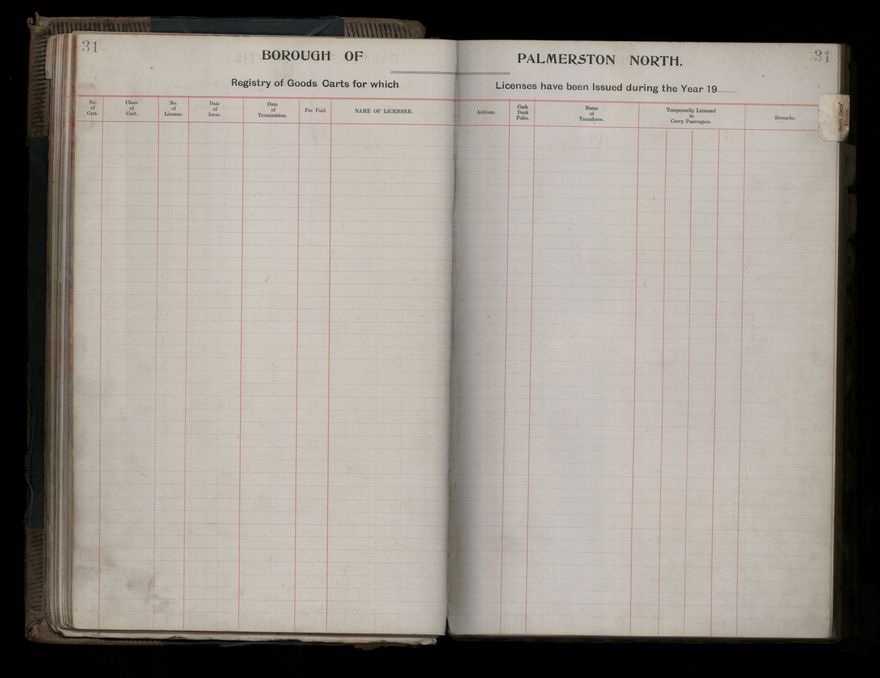 31
BOROUGH OF PALMERSTON NORTH.
31
Registry of Goods Carts for which Licenses have been Issued during the Year 19
No. of Cart.
Class of Cart.
No. of License.
Date of Issue.
Date of Termination.
Fee Paid.
NAME OF LICENSEE.
Address.
Cash Book Folio.
Name of Transferee.
Temporarily Licensed to Carry Passengers.
Remarks.